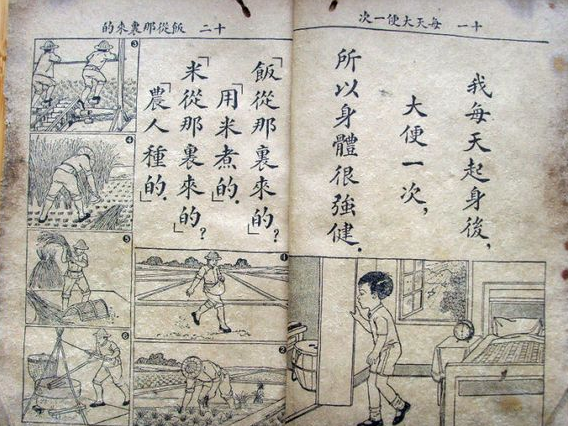 十一 每天大便一次
我每天起身後，
大便一次，
所以身體很強健．
十二 飯從那裏來的
「飯從那裏來的？」
「用米煮的．」
「米從那裏來的？」
「農人種的．」
❶
❷
❸
❹
❺
❻